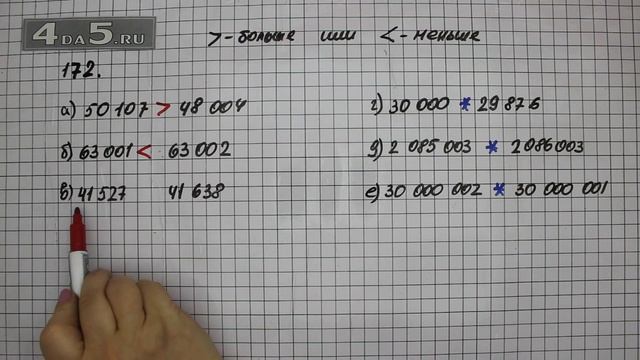 4DA5.RU
>-больше или <-меньше
172.
а) 50 107 > 48 004
б) 63 001 < 63 002
в) 41 527 41 638
г) 30 000 * 29 876
д) 2 085 003 * 2 086 003
е) 30 000 002 * 30 000 001